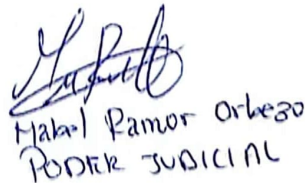 Mabel Ramos Orbezo
PODER JUDICIAL